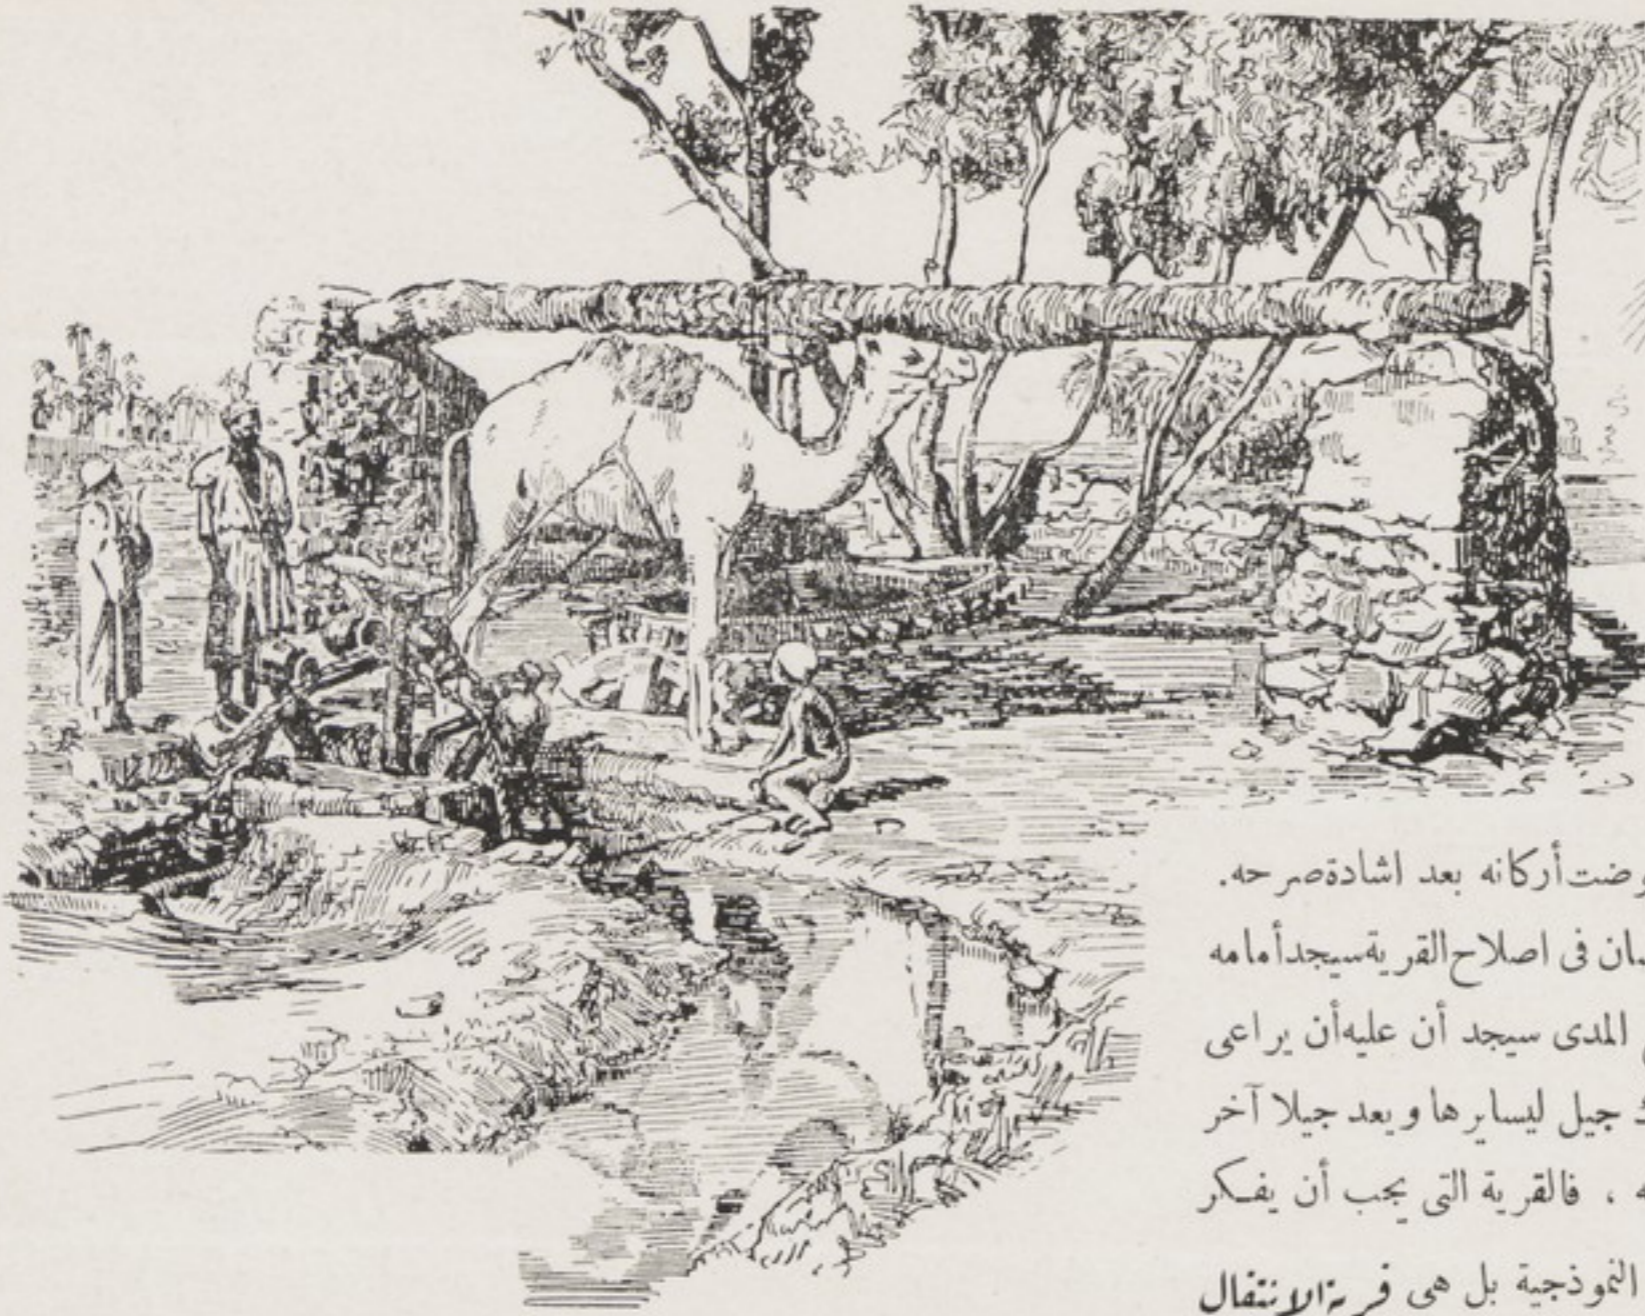 أركانه بعد اشادة صرحه.
فى اصلاح القرية سيجد أمامه
المدى سيجد أن عليه أن يراعى
جيل ليسايرها ويعد جيلا آخر
، فالقرية التى يجب أن يفكر
النموذجية بل هى قرية الانتقال